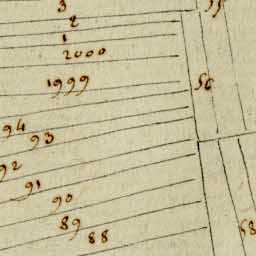 3
2
1
2000
1999
56
94
93
92
91
90
89
88